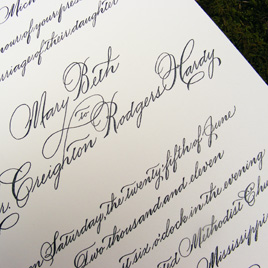 Mich
onour of your presen
rriage of their daughter
Mary Beth
to
r. Creighton Rodgers Hardy
on Saturday, the twenty-fifth of June
Two thousand and eleven
at six o'clock in the evening
ted Methodist Chu
Mississippi